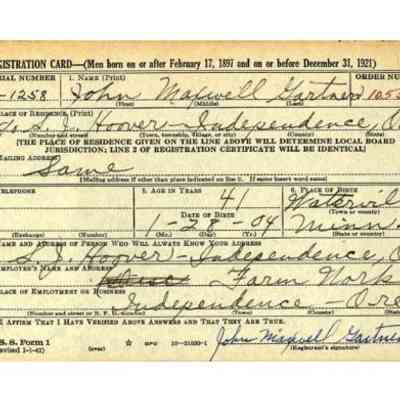 EGISTRATION CARD—(Men born on or after February 17, 1897 and on or before December 31, 1921)
ERIAL NUMBER 1. NAME (Print) ORDER NU
-1258 John Maxwell Gartner 1053
(First) (Middle) (Last)
LACE OF RESIDENCE (Print)
S. J. Hoover – Independence, O
(Number and street) (Town, township, village, or city) (County) (State)
[THE PLACE OF RESIDENCE GIVEN ON THE LINE ABOVE WILL DETERMINE LOCAL BOARD
JURISDICTION; LINE 2 OF REGISTRATION CERTIFICATE WILL BE IDENTICAL]
MAILING ADDRESS
Same
[Mailing address if other than place indicated on line 2. If same insert word same]
TELEPHONE 5. AGE IN YEARS 6. PLACE OF BIRTH
41 Watervil
DATE OF BIRTH (Town or county)
1-28-04 Minn.
(Exchange) (Number) (Mo.) (Day) (Yr.) (State or country)
NAME AND ADDRESS OF PERSON WHO WILL ALWAYS KNOW YOUR ADDRESS
S. J. Hoover – Independence, O
EMPLOYER'S NAME AND ADDRESS
Farm Work
LACE OF EMPLOYMENT OR BUSINESS
Independence – Ore
(Number and street or R. F. D. number) (Town) (County) (State)
I AFFIRM THAT I HAVE VERIFIED ABOVE ANSWERS AND THAT THEY ARE TRUE.
S. S. Form 1 John Maxwell Gartner
evised 1-1-42) (over) ☆ GPO 16—21630-1 (Registrant's signature)